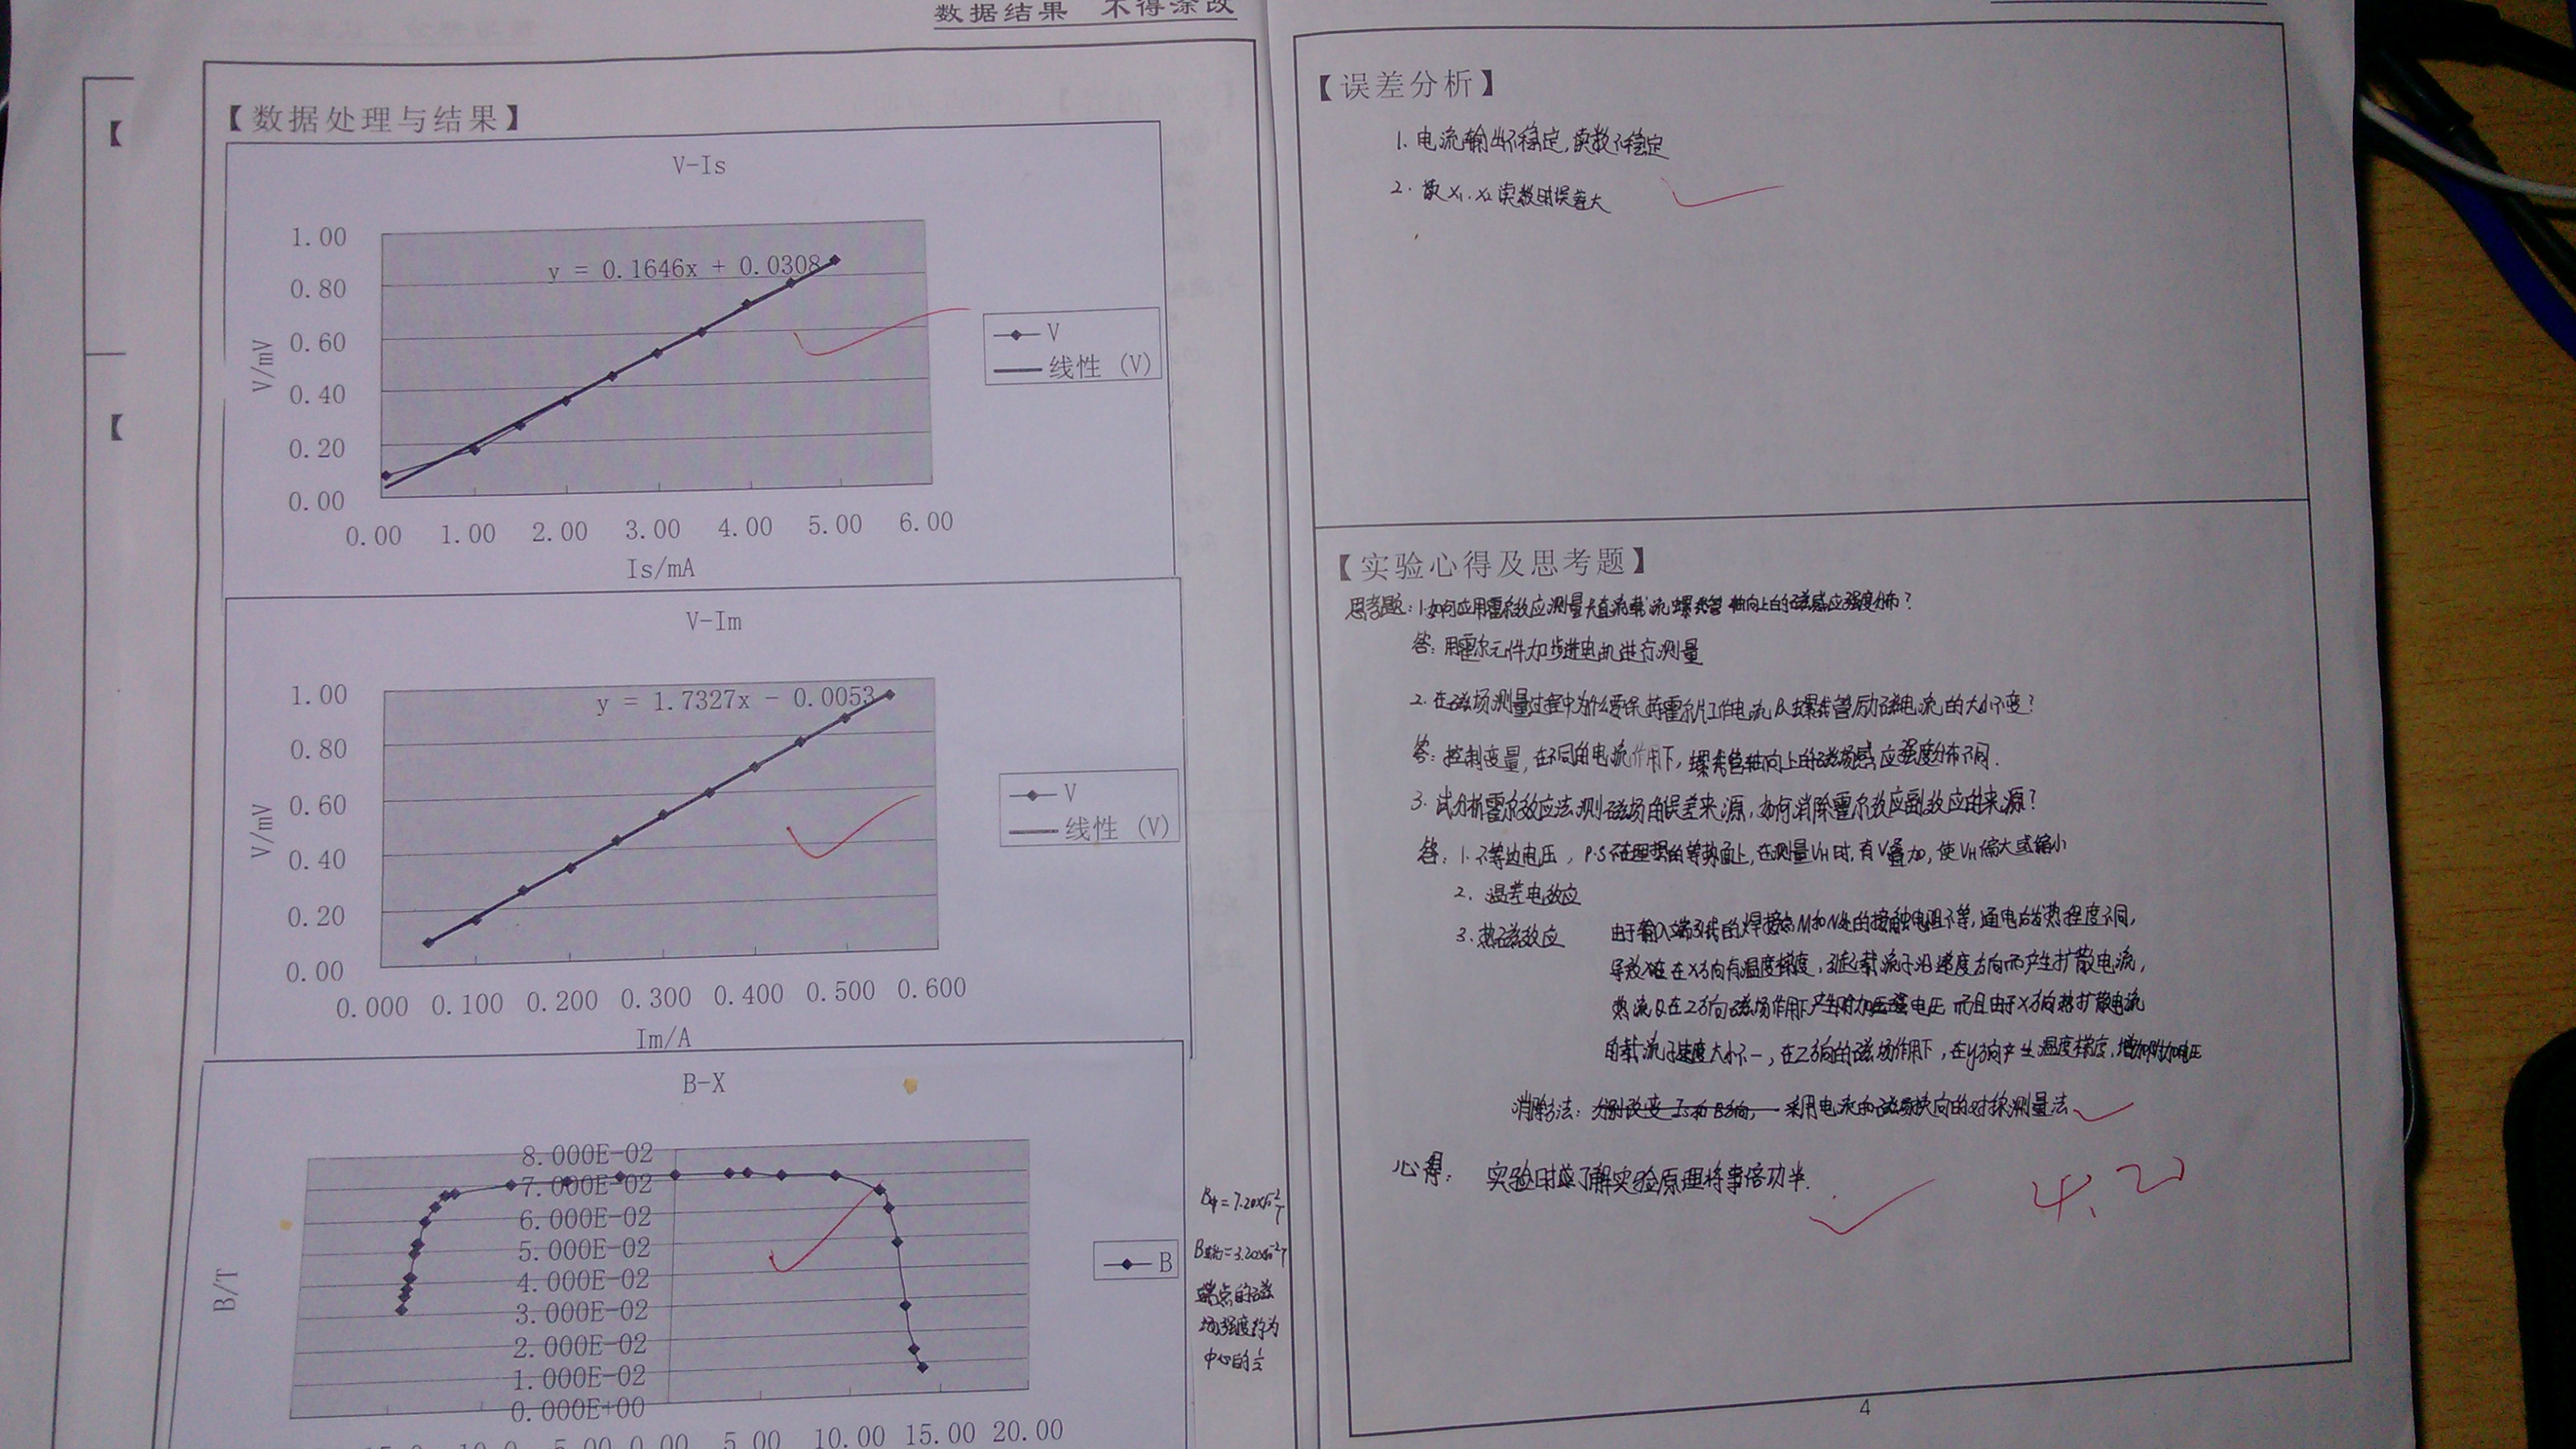 数据结果 不得涂改
【数据处理与结果】
V-Is
y = 0.1646x + 0.0308
1.00
0.80
0.60
0.40
0.20
0.00
V/mV
0.00 1.00 2.00 3.00 4.00 5.00 6.00
Is/mA
V
线性 (V)
V-Im
y = 1.7327x - 0.0053
1.00
0.80
0.60
0.40
0.20
0.00
V/mV
0.000 0.100 0.200 0.300 0.400 0.500 0.600
Im/A
V
线性 (V)
B-X
8.000E-02
7.000E-02
6.000E-02
5.000E-02
4.000E-02
3.000E-02
2.000E-02
1.000E-02
0.000E+00
B/T
5.00 0.00 5.00 10.00 15.00 20.00
B
端点的磁
场强度约为
中心的½
【误差分析】
1. 电流输出不稳定,读数不稳定
2. 散X₁.X₂读数时误差大
【实验心得及思考题】
思考题:1.如何应用霍尔效应测量长直流载流螺线管轴向上的磁感应强度分布?
答:用霍尔元件加步进电机进行测量
2.在磁场测量过程中为什么要保持霍尔片工作电流及螺线管励磁电流的大小不变?
答:控制变量,在不同的电流作用下,螺线管轴向上的磁场感应强度分布不同.
3.试分析霍尔效应法测磁场的误差来源,如何消除霍尔效应副效应的来源?
答:1.不等边电压,P.S不在理想的等势面上,在测量VH时,有V叠加,使VH偏大或偏小
2. 温差电效应
3. 热磁效应
由于输入端引线的焊接点M和N处的接触电阻不等,通电后发热程度不同,
导致在X方向有温度梯度,引起载流子沿速度方向而产生扩散电流,
热流Q在Z方向磁场作用下产生附加电压 而且由于X方向热扩散电流
的载流子速度大小不一,在Z方向的磁场作用下,在y方向产生温度梯度,增加附加电压
消除方法:分别改变Is和B方向, 采用电流和磁场换向的对称测量法
心得: 实验时了解实验原理将事倍功半.
4.20
4